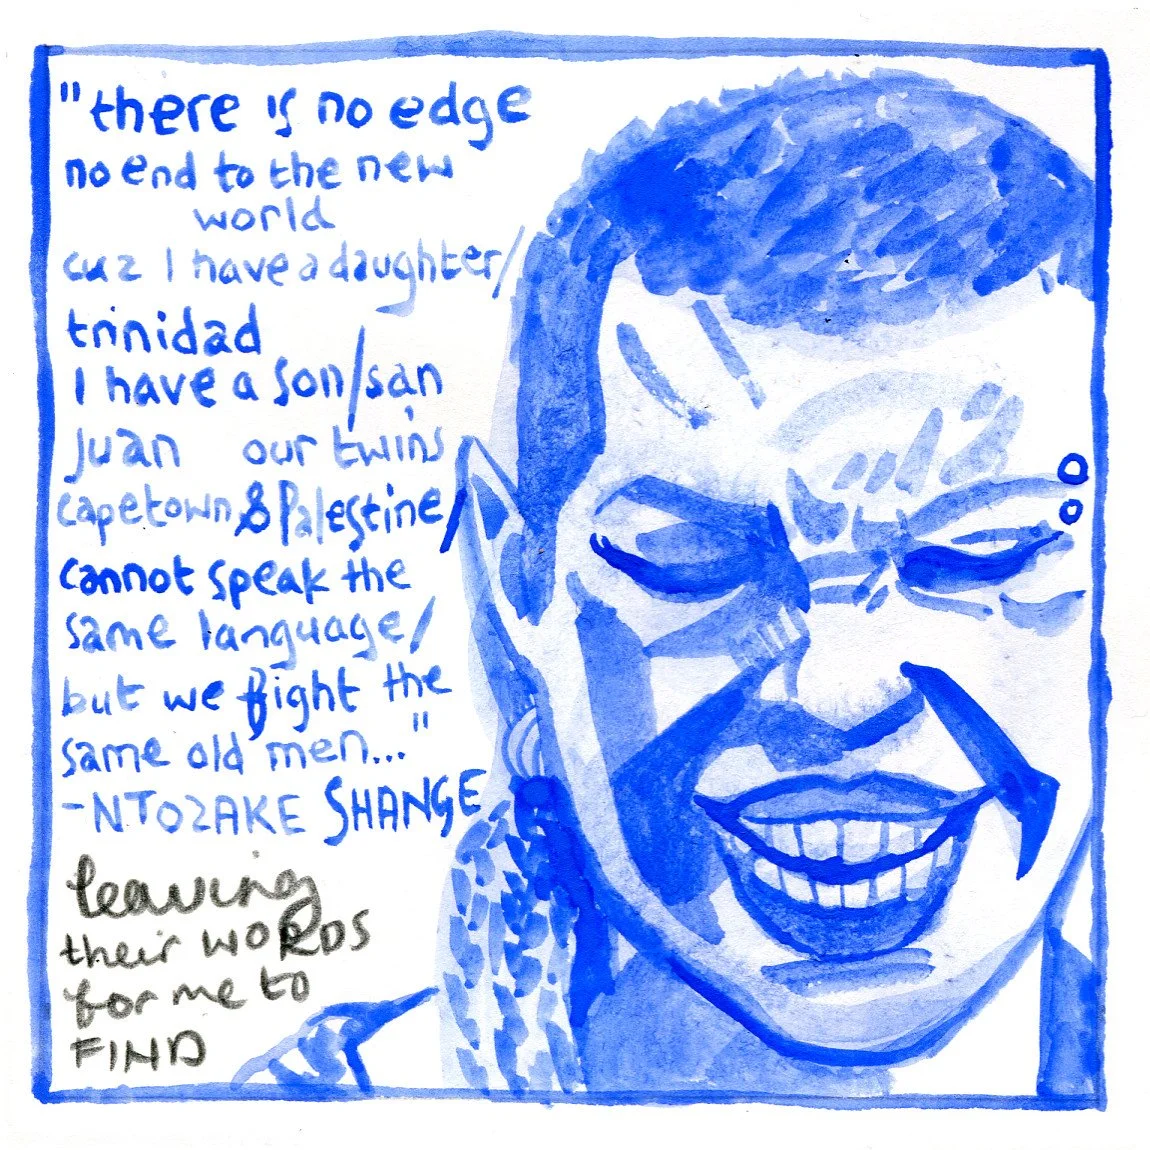 "there is no edge
no end to the new
world
cuz I have a daughter/
trinidad
I have a son/san
juan our twins
capetown & Palestine/
cannot speak the
same language/
but we fight the
same old men..."
-NTOZAKE SHANGE
leaving
their WORDS
for me to
FIND